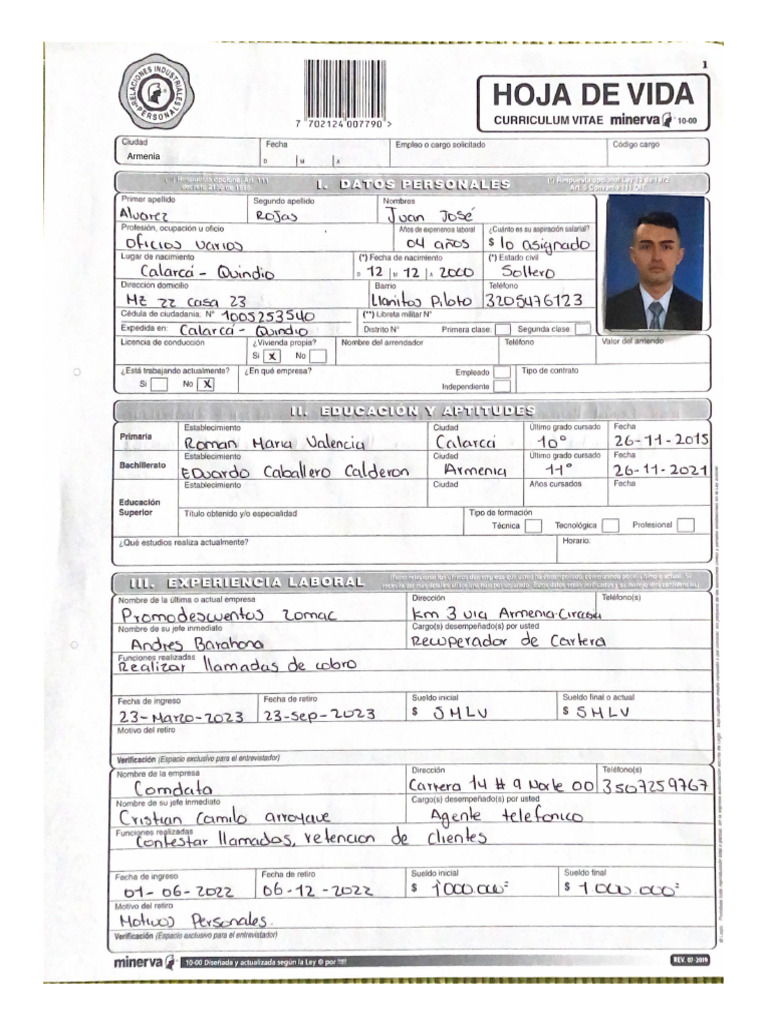 1
RELACIONES INDUSTRIALES
PERSONALES
7 702124 007790 >
HOJA DE VIDA
CURRICULUM VITAE minerva 10-00
Ciudad Fecha Empleo o cargo solicitado Código cargo
Armenia D M A
I. DATOS PERSONALES
Primer apellido Segundo apellido Nombres
Alvarez Rojas Juan José
Profesión, ocupación u oficio Años de experiencia laboral ¿Cuánto es su aspiración salarial?
Oficios varios 04 años $ lo asignado
Lugar de nacimiento (*) Fecha de nacimiento (*) Estado civil
Calarcá - Quindio D 12 M 12 A 2000 Soltero
Dirección domicilio Barrio Teléfono
Mz 22 casa 23 Llanitos Piloto 3205476123
Cédula de ciudadanía. N° 1005253540 (**) Libreta militar N°
Expedida en: Calarcá - Quindio Distrito N° Primera clase: Segunda clase:
Licencia de conducción ¿Vivienda propia? Nombre del arrendador Teléfono Valor del arriendo
Si X No
¿Está trabajando actualmente? ¿En qué empresa? Empleado Tipo de contrato
Si No X Independiente
II. EDUCACIÓN Y APTITUDES
Primaria Establecimiento Ciudad Último grado cursado Fecha
Roman Maria Valencia Calarcá 10° 26-11-2015
Bachillerato Establecimiento Ciudad Último grado cursado Fecha
Eduardo Caballero Calderon Armenia 11° 26-11-2021
Educación Superior Establecimiento Ciudad Años cursados Fecha
Título obtenido y/o especialidad Tipo de formación
Técnica Tecnológica Profesional
¿Qué estudios realiza actualmente? Horario:
III. EXPERIENCIA LABORAL
Nombre de la última o actual empresa Dirección Teléfono(s)
Promodescuentos zomac km 3 via Armenia-Circasia
Nombre de su jefe inmediato Cargo(s) desempeñado(s) por usted
Andres Barahona Recuperador de Cartera
Funciones realizadas
Realizar llamadas de cobro
Fecha de ingreso Fecha de retiro Sueldo inicial Sueldo final o actual
23-Marzo-2023 23-Sep-2023 $ SMLV $ SMLV
Motivo del retiro
Verificación (Espacio exclusivo para el entrevistador)
Nombre de la empresa Dirección Teléfono(s)
Comdata Carrera 14 # 9 Norte 00 3507259767
Nombre de su jefe inmediato Cargo(s) desempeñado(s) por usted
Cristian Camilo arroyave Agente telefonico
Funciones realizadas
Contestar llamados, retencion de clientes
Fecha de ingreso Fecha de retiro Sueldo inicial Sueldo final
01-06-2022 06-12-2022 $ 1000.000= $ 1000.000=
Motivo del retiro
Motivos Personales.
Verificación (Espacio exclusivo para el entrevistador)
minerva 10-00 Diseñada y actualizada según la Ley © por REV. 07-2019